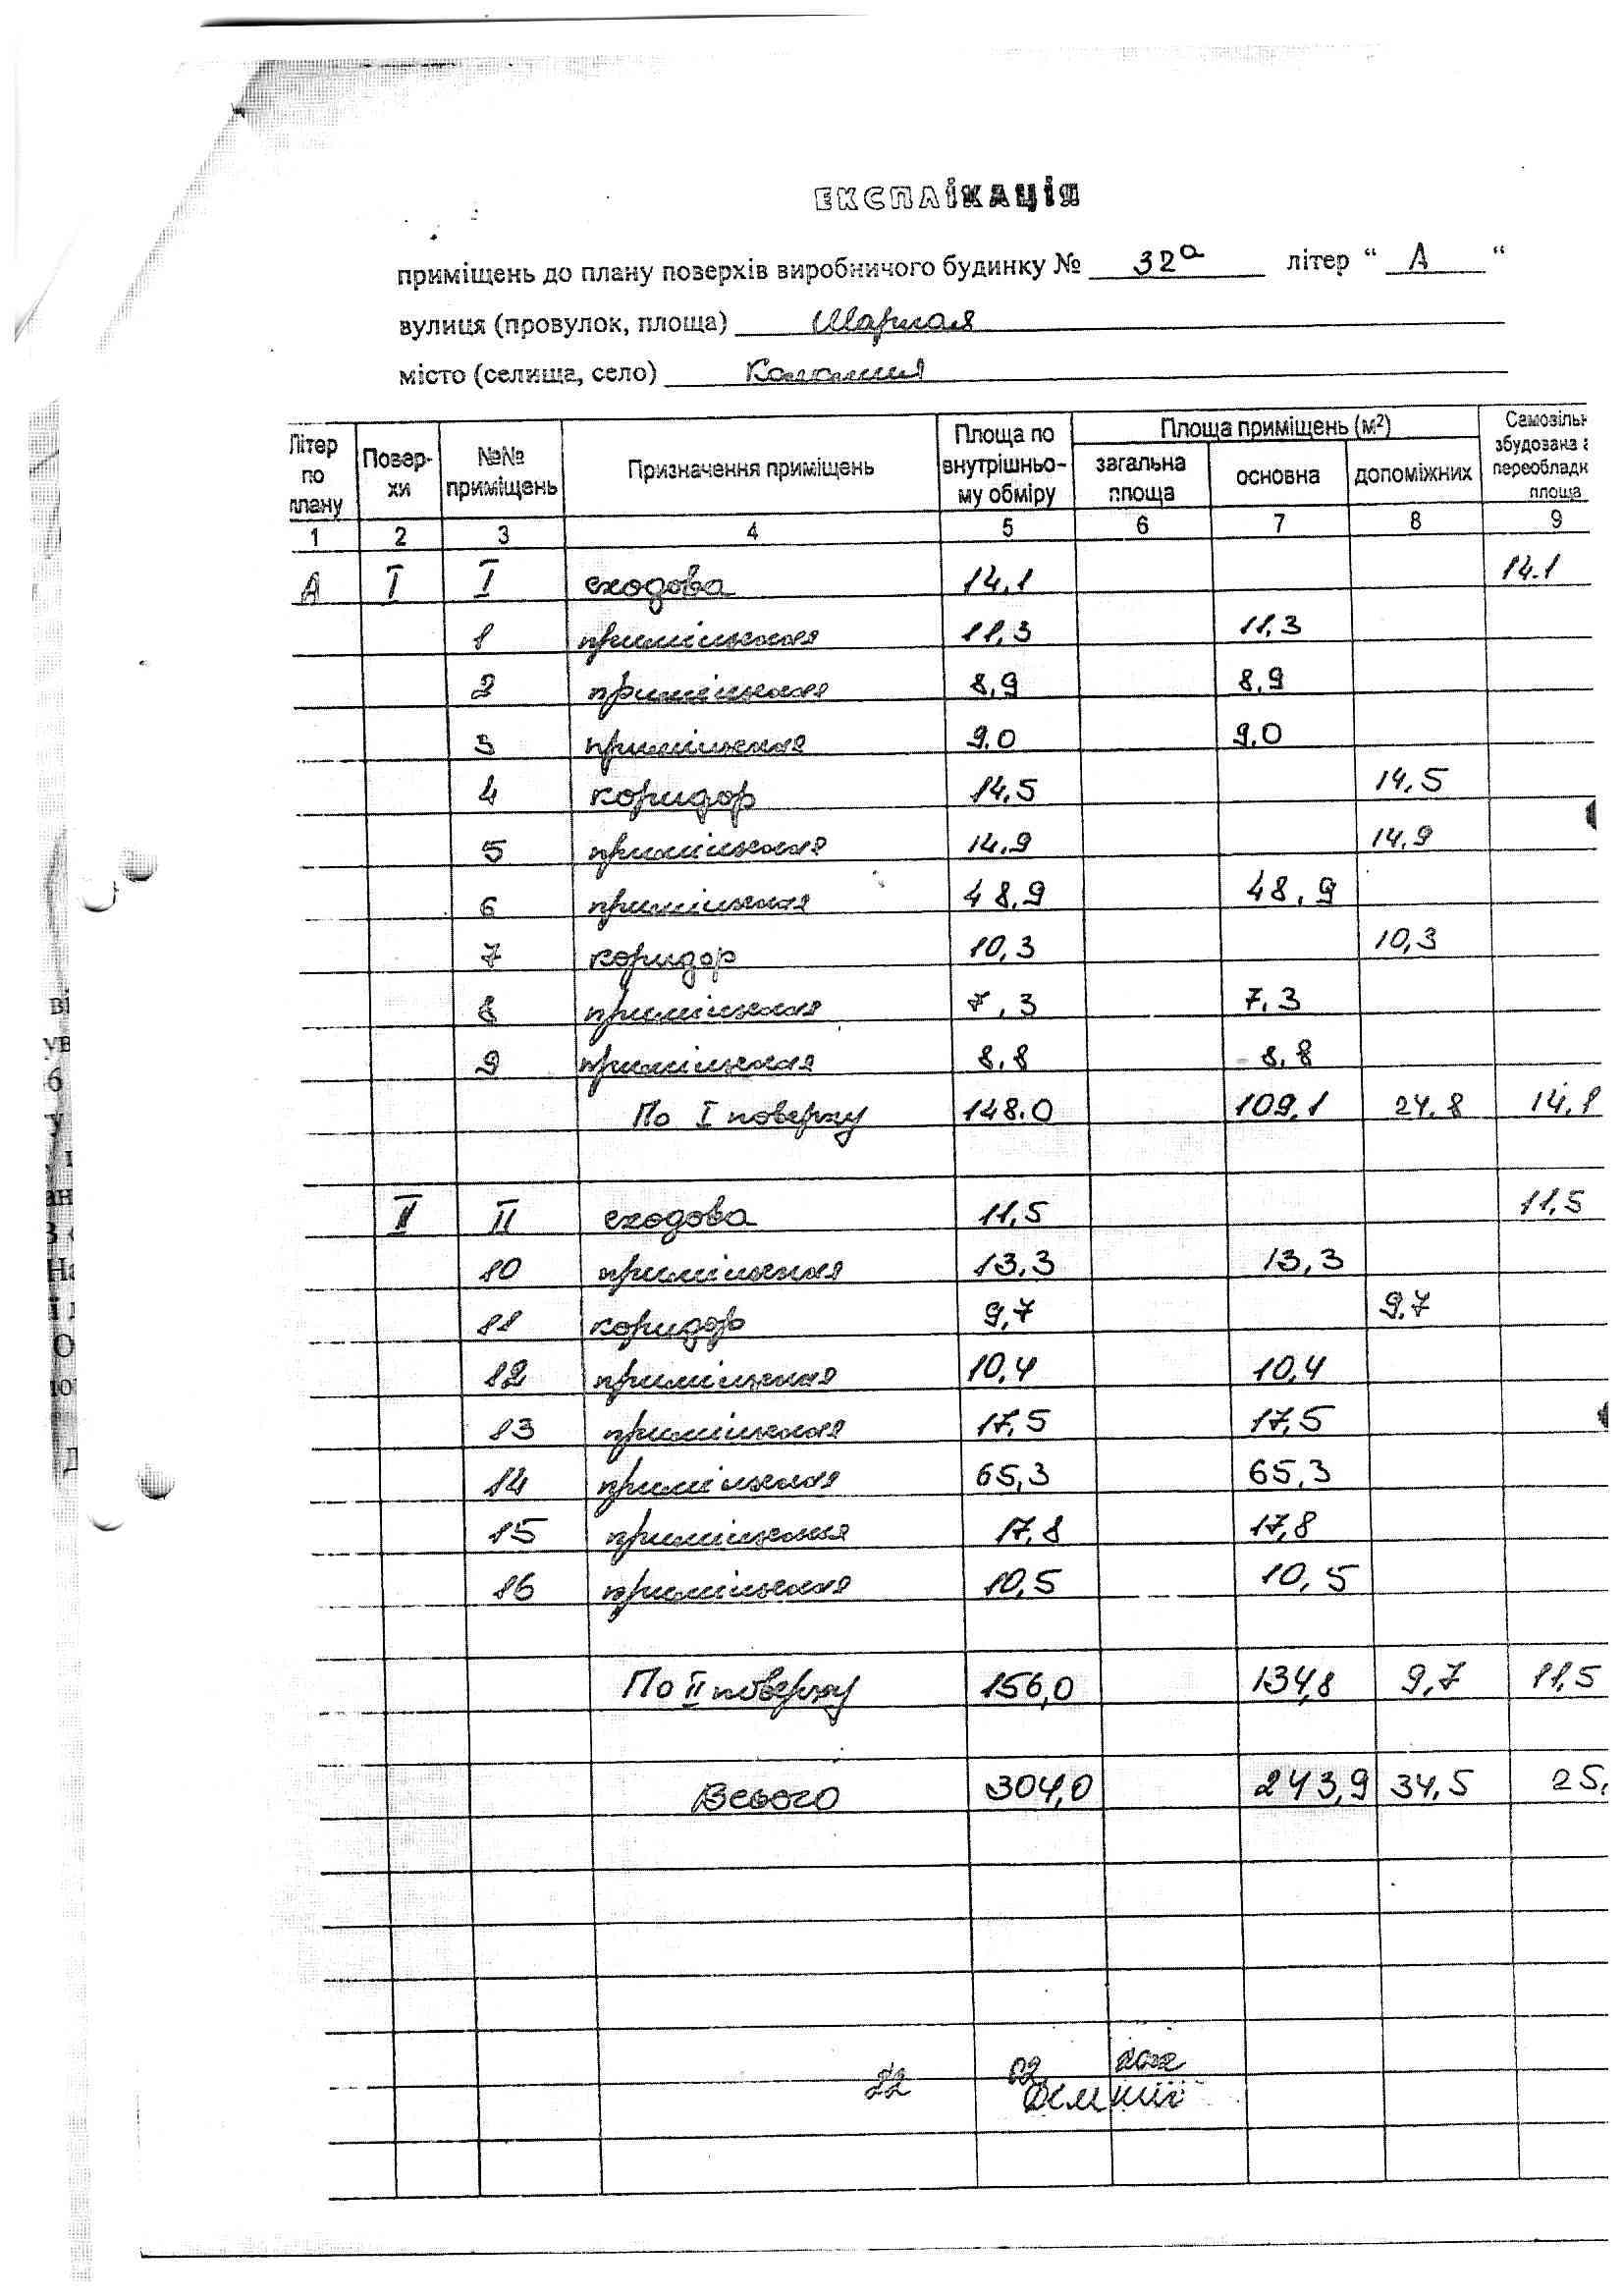 ЕКСПЛІКАЦІЯ
приміщень до плану поверхів виробничого будинку № 32а літер “ А “
вулиця (провулок, площа)
місто (селища, село) Коломия
Літер по плану Повер-хи №№ приміщень Призначення приміщень Площа по внутрішньо-му обміру Площа приміщень (м²) загальна площа основна допоміжних Самозільн збудована переобладн площа
1 2 3 4 5 6 7 8 9
А І І сходова 14,1 14.1
1 приміщення 11,3 11,3
2 приміщення 8,9 8,9
3 приміщення 9.0 9.0
4 коридор 14,5 14,5
5 приміщення 14,9 14,9
6 приміщення 48,9 48,9
7 коридор 10,3 10,3
8 приміщення 7,3 7,3
9 приміщення 8.8 8.8
По І поверху 148.0 109,1 24.8 14,1
ІІ ІІ сходова 11,5 11,5
10 приміщення 13,3 13,3
11 коридор 9,7 9,7
12 приміщення 10,4 10,4
13 приміщення 17,5 17,5
14 приміщення 65,3 65,3
15 приміщення 17,8 17,8
16 приміщення 10,5 10,5
По ІІ поверху 156,0 134,8 9,7 11,5
Всього 304,0 243,9 34,5 25,
22 02 2002